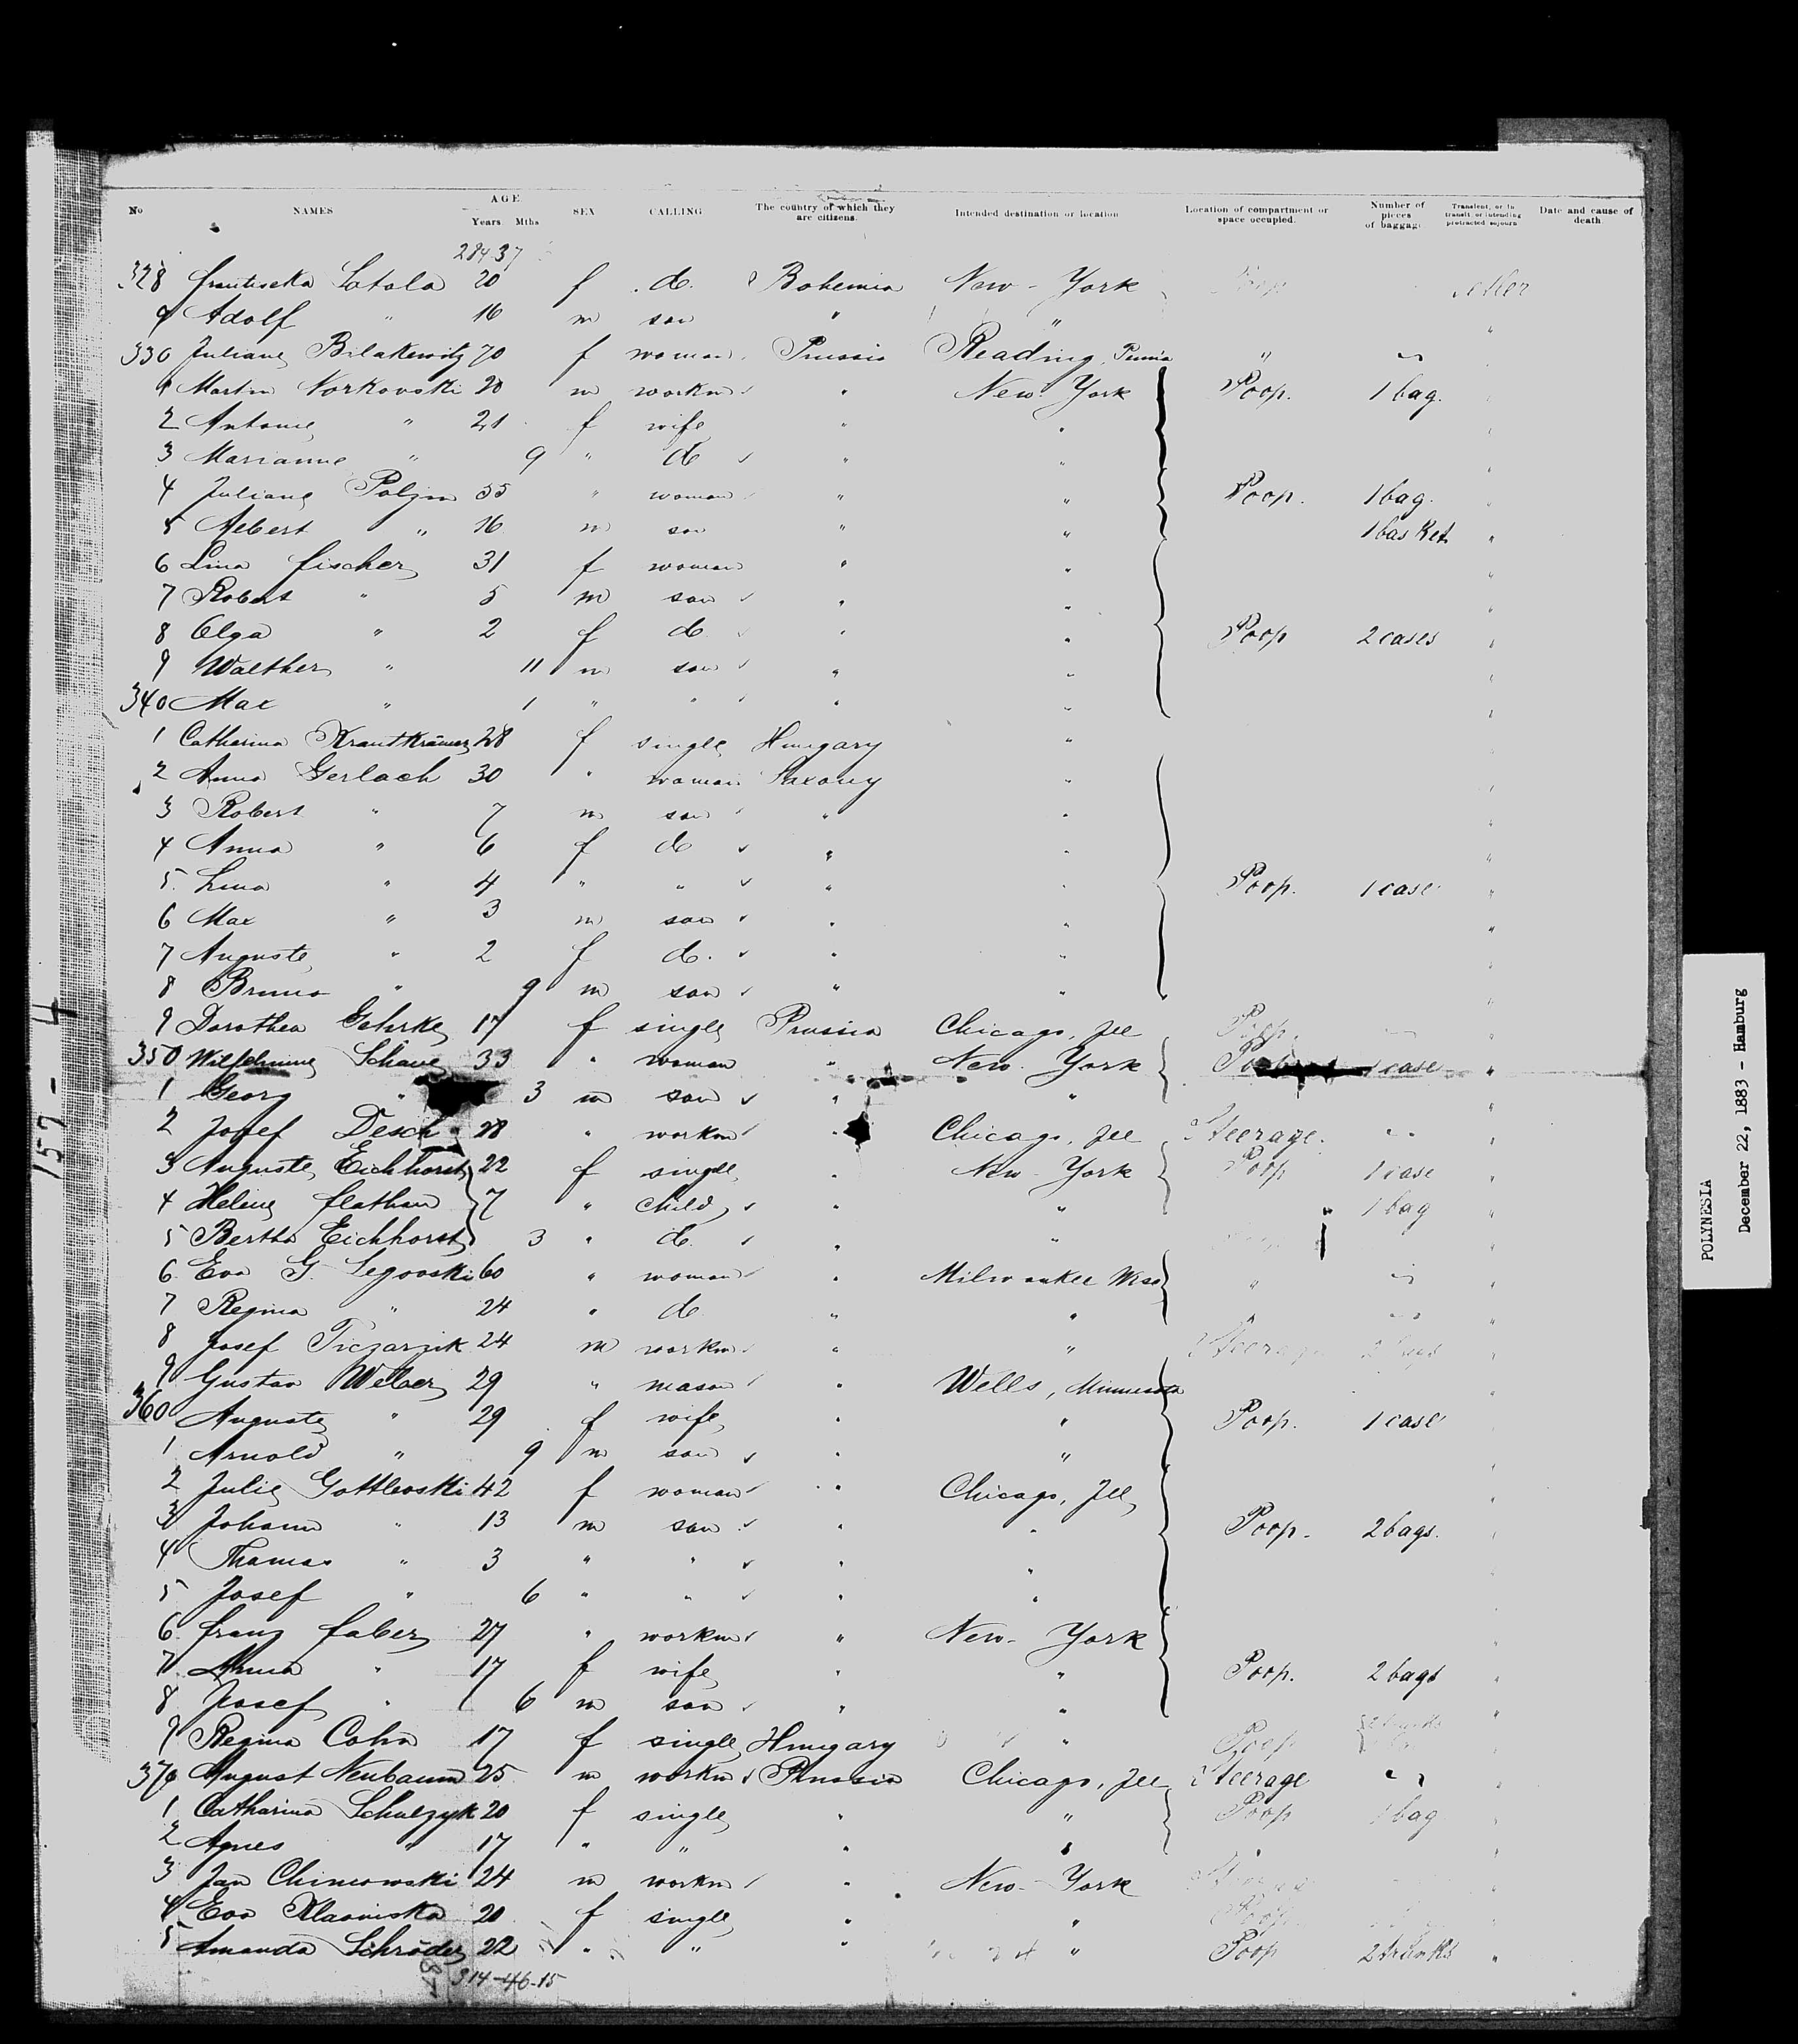 No NAMES AGE Years Mths SEX CALLING The country of which they are citizens. Intended destination or location Location of compartment or space occupied. Number of pieces of baggage Transient, or in transit or intending protracted sojourn Date and cause of death.
284 37
328 Frantiseka Sotola 20 f do. Bohemia New-York Poop
9 Adolf " 16 m son " "
330 Juliane Bilakewitz 70 f woman Prussia Reading, Penna " "
1 Martin Norkovski 28 m workm " New York Poop. 1 bag.
2 Antonie " 21 f wife " "
3 Marianne " 9 " do " "
4 Juliane Poljin 55 " woman " " Poop. 1 bag. "
5 Albert " 16 m son " " 1 basket "
6 Lina Fischer 31 f woman " " "
7 Robert " 5 m son " " "
8 Olga " 2 f do " " Poop 2 cases "
9 Walther " 11 m son " " "
340 Max " 1 " " " " "
1 Catharina Krautkrämer 28 f single Hungary "
2 Anna Gerlach 30 " woman Saxony " "
3 Robert " 7 m son " " "
4 Anna " 6 f do " " "
5. Lina " 4 " " " " Poop. 1 case "
6 Max " 3 m son " " "
7 Auguste " 2 f do. " " "
8 Bruno " 9 m son " " "
9 Dorothea Gehrke 17 f single Prussia Chicago, Ill Poop "
350 Wilhelmine Schave 33 " woman " New York 1 case "
1 Georg " 3 m son " " "
2 Josef Desch 28 " workm " Chicago, Ill Steerage. " "
3 Auguste Eichhorst 22 f single " New-York Poop 1 case "
4 Helene Flathow 7 " child " " " 1 bag "
5 Bertha Eichhorst 3 " do " " "
6 Eva G. Legovski 60 " woman " Milwaukee Wisc " " "
7 Regina " 24 " do " " " " "
8 Josef Ticzarzik 24 m workm " " Steerage 2 bags "
9 Gustav Weber 29 " mason " Wells, Minnesota "
360 Auguste " 29 f wife " " Poop. 1 case
1 Arnold " 9 m son " "
2 Julie Gottlevski 42 f woman " Chicago, Ill "
3 Johann " 13 m son " " Poop. 2 bags.
4 Thomas " 3 " " " "
5 Josef " 6 " " " "
6 Franz Faber 27 " workm " New-York "
7 Anna " 17 f wife " " Poop. 2 bags "
8 Josef " 6 m son " " "
9 Regina Cohn 17 f single Hungary " Poop
370 August Neubaum 25 m workm Prussia Chicago, Ill Steerage " "
1 Catharina Schulzyk 20 f single " " Poop 1 bag "
2 Agnes " 17 " " " " "
3 Jan Chimowski 24 m workm " New-York
4 Eva Klavniska 20 f single " " Poop
5 Amanda Schröder 22 " " " " Poop 2 trunks "
314-46-15
157-4
POLYNESIA
December 22, 1883 - Hamburg